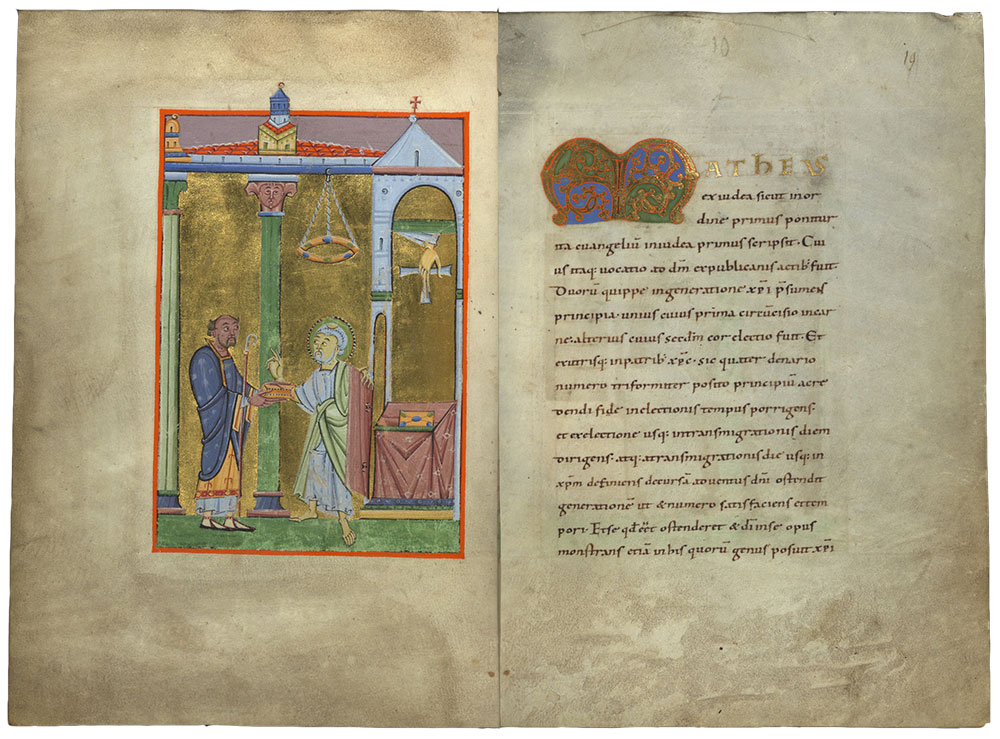 10
19
MATHEUS
ex iudea sicut in or
dine primus ponitur
ita euangeliũ in iudea primus scripsit · Cui
us itaq; uocatio ad dm̃ ex publicanis actib; fuit.
Duorũ quippe in generatione xp̃i p̃sumens
principia · unius cuius prima circũcisio in car
ne. alterius cuius scd̃m cor electio fuit. Et
ex utrisq; in patrib; xp̃c · Sic quater denario
numero triformiter posito principiũ a cre
dendi fide in electionis tempus porrigens.
et ex electione usq; in transmigrationis diem
dirigens. atq; a transmigrationis die usq; in
xp̃m definiens decursã aduentus dm̃i ostendit
generationẽ ut & numero satisfaciens et tem
pori · Et se qđ eẽt ostenderet & dĩ in se opus
monstrans etiã in his quorũ genus posuit xp̃i